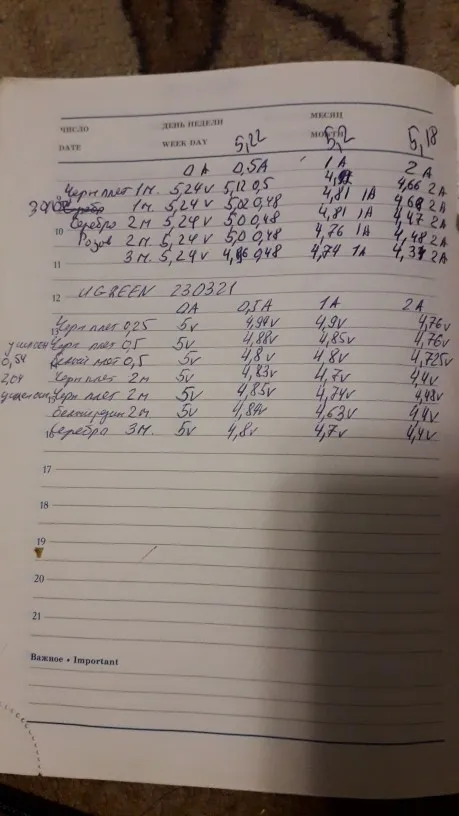 ЧИСЛО ДЕНЬ НЕДЕЛИ МЕСЯЦ
DATE WEEK DAY 5,22 MONTH 5,2 5,18
0A 0,5A 1A 2A
Черн плет 1м. 5,24v 5,12 0,5 4,66 2A
1м. 5,24v 5,02 0,48 4,81 1A 4,69 2A
10 Серебро 2м 5,24v 5,0 0,48 4,81 1A 4,47 2A
Розов 2м 5,24v 5,0 0,48 4,76 1A 4,48 2A
11 3м. 5,24v 4,96 0,48 4,74 1A 4,34 2A
12 UGREEN 230321
0A 0,5A 1A 2A
Черн плет 0,25 5v 4,94v 4,9v 4,76v
Черн плет 0,5 5v 4,88v 4,85v 4,76v
0,54 0,5 5v 4,8v 4,8v 4,725v
2,04 Черн плет 2м 5v 4,83v 4,7v 4,4v
Черн плет 2м 5v 4,85v 4,74v 4,48v
2м 5v 4,84v 4,63v 4,4v
Серебро 3м. 5v 4,8v 4,7v 4,4v
17
18
19
20
21
Важное • Important